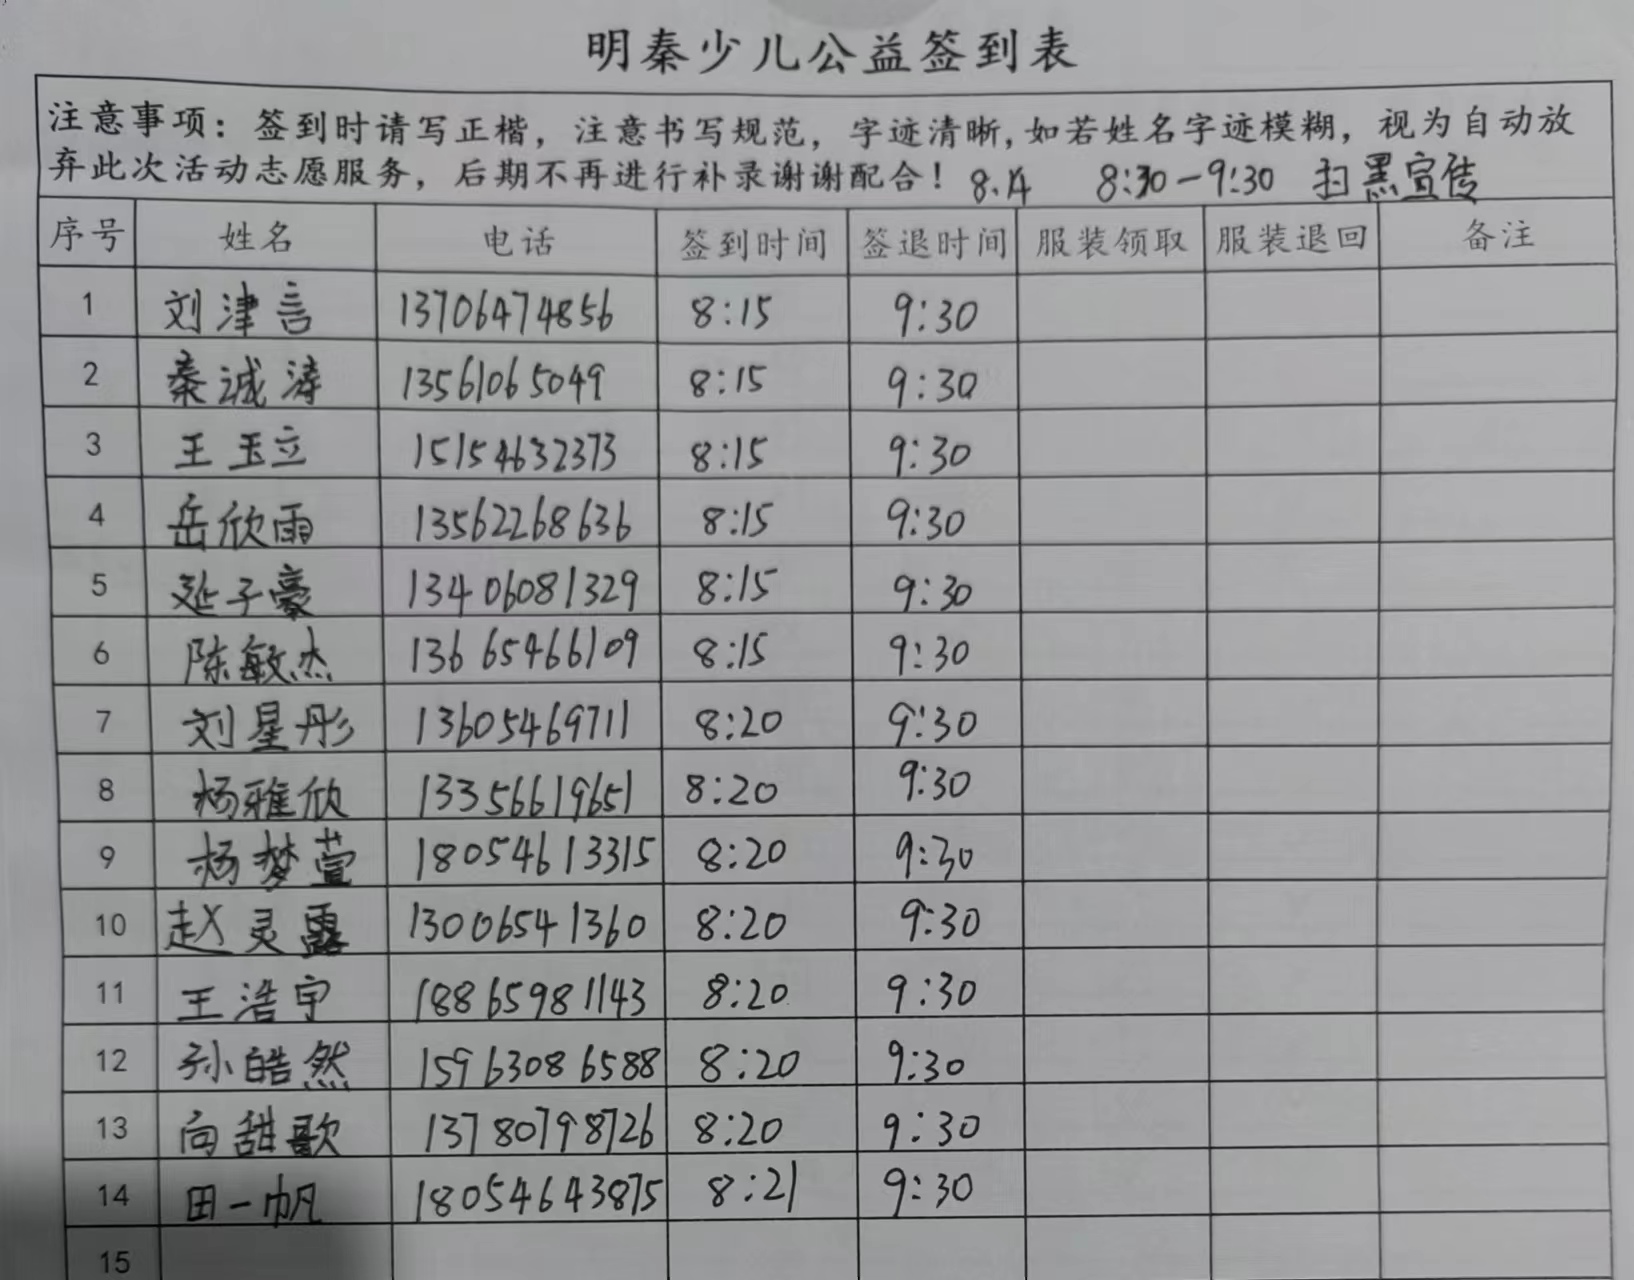 明秦少儿公益签到表
注意事项：签到时请写正楷，注意书写规范，字迹清晰，如若姓名字迹模糊，视为自动放
弃此次活动志愿服务，后期不再进行补录谢谢配合！ 8.14 8:30-9:30 扫黑宣传
序号 姓名 电话 签到时间 签退时间 服装领取 服装退回 备注
1 刘津言 13706474856 8:15 9:30
2 秦诚涛 13561065049 8:15 9:30
3 王玉立 15154632373 8:15 9:30
4 岳欣雨 13562268636 8:15 9:30
5 延子豪 13406081329 8:15 9:30
6 陈敏杰 13665466109 8:15 9:30
7 刘星彤 13605469711 8:20 9:30
8 杨雅欣 13356619651 8:20 9:30
9 杨梦萱 18054613315 8:20 9:30
10 赵灵露 13006541360 8:20 9:30
11 王浩宇 18865981143 8:20 9:30
12 孙皓然 15963086588 8:20 9:30
13 向甜歌 13780798726 8:20 9:30
14 田一帆 18054643875 8:21 9:30
15